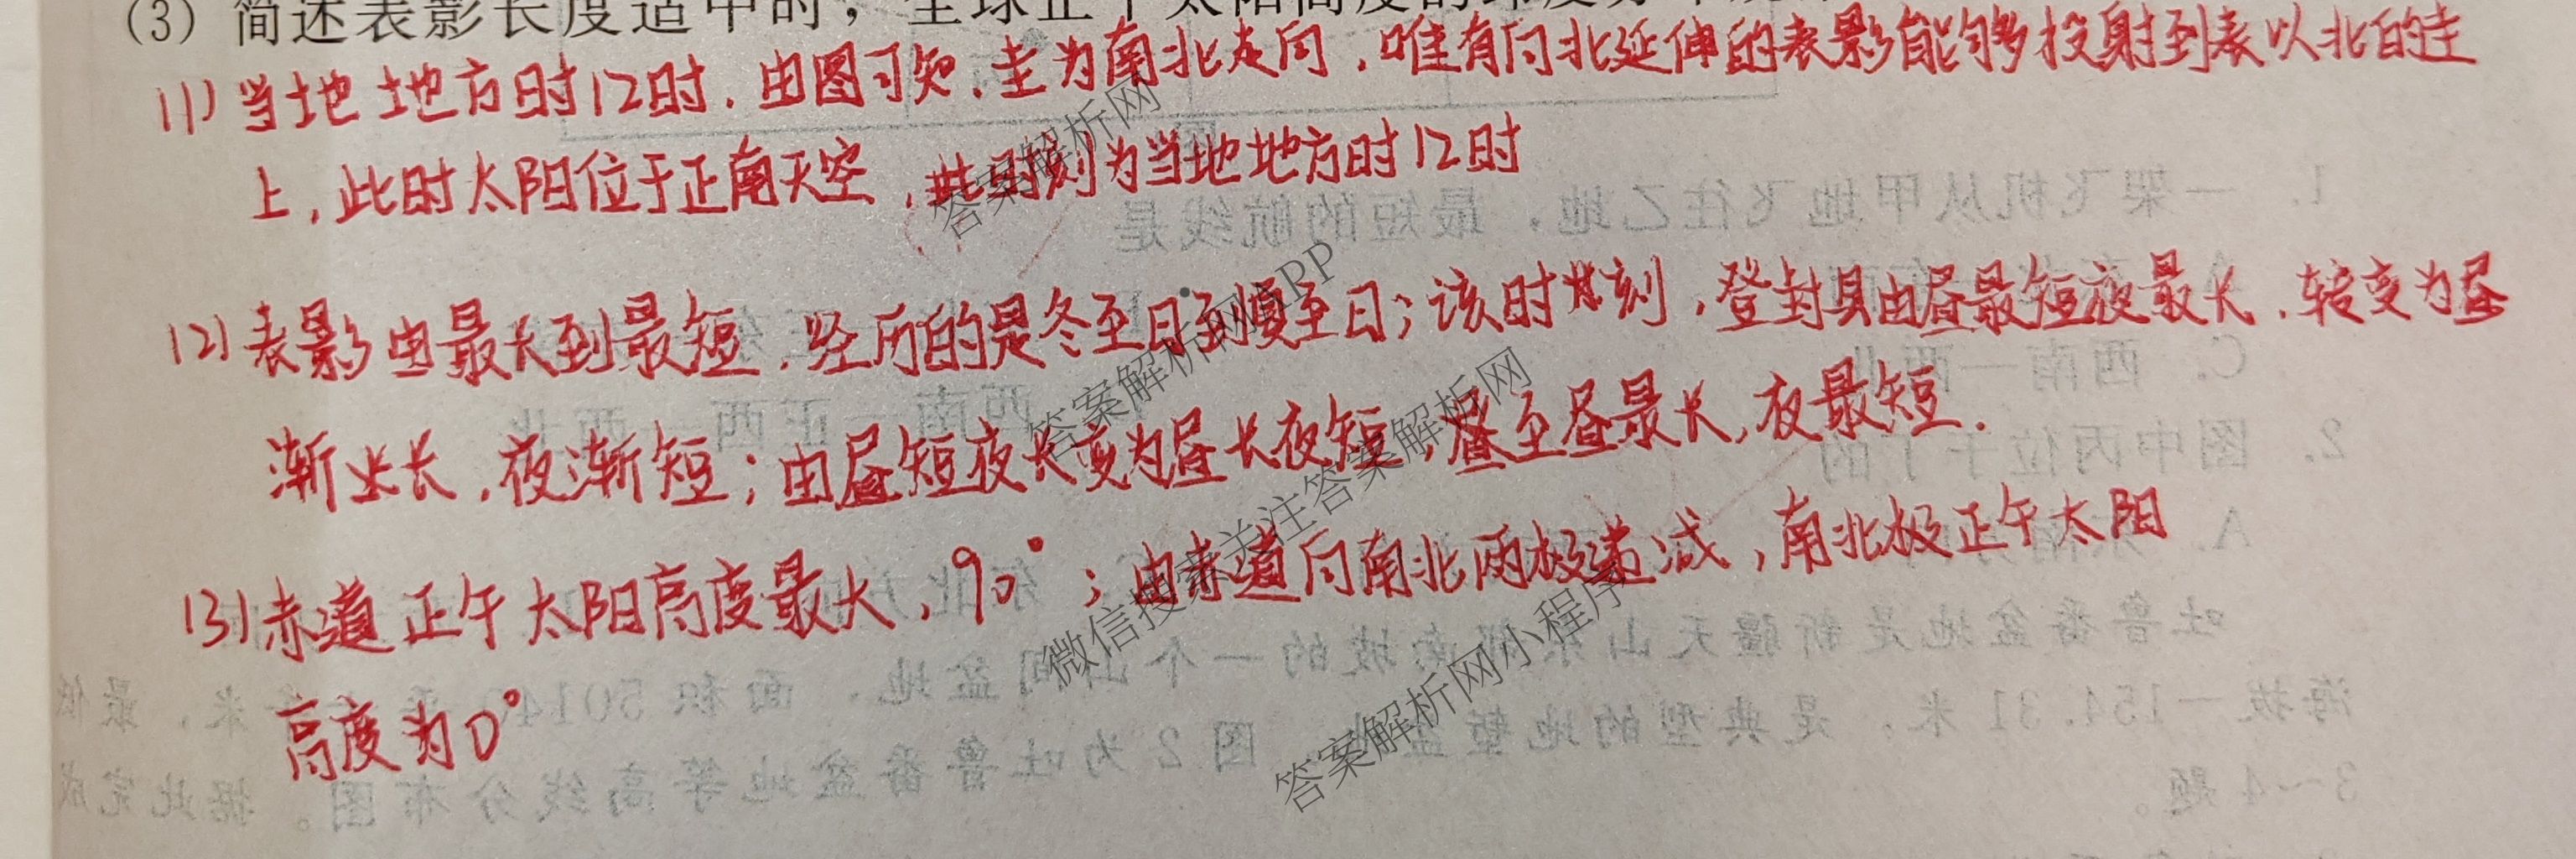 (3) 简述表影长度适中时，全球正午太阳高度的纬度分布规
(1) 当地地方时12时.由图可知,圭为南北走向,唯有向北延伸的表影能够投射到表以北的圭
上,此时太阳位于正南天空,此时刻为当地地方时12时
(2) 表影由最长到最短,经历的是冬至日到夏至日;该时刻,登封县由昼最短夜最长,转变为昼
渐长,夜渐短;由昼短夜长变为昼长夜短,至昼最长,夜最短.
(3) 赤道正午太阳高度最大,90°;由赤道向南北两极递减,南北极正午太阳
高度为0°
答案解析网
答案解析网APP
微信搜索关注答案解析网
答案解析网小程序
1. 一架飞机从甲地飞往乙地，最短的航线是
C. 西南—西北
西南—正西—西北
2. 图中丙位于丁的
吐鲁番盆地是新疆天山东部南坡的一个山间盆地，面积50140平方千米，最低
海拔－154.31米，是典型的地堑盆地。图2为吐鲁番盆地等高线分布图。据此完成
3～4题。